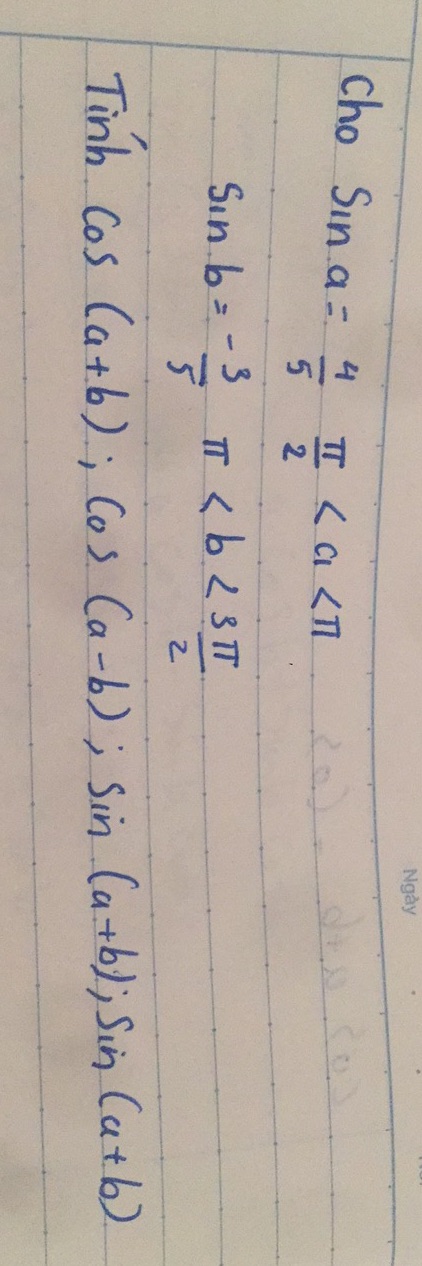 Ngày
Cho Sin a = 4/5 π/2 < a < π
Sin b = -3/5 π < b < 3π/2
Tính Cos (a+b); Cos (a-b); Sin (a+b); Sin (a+b)